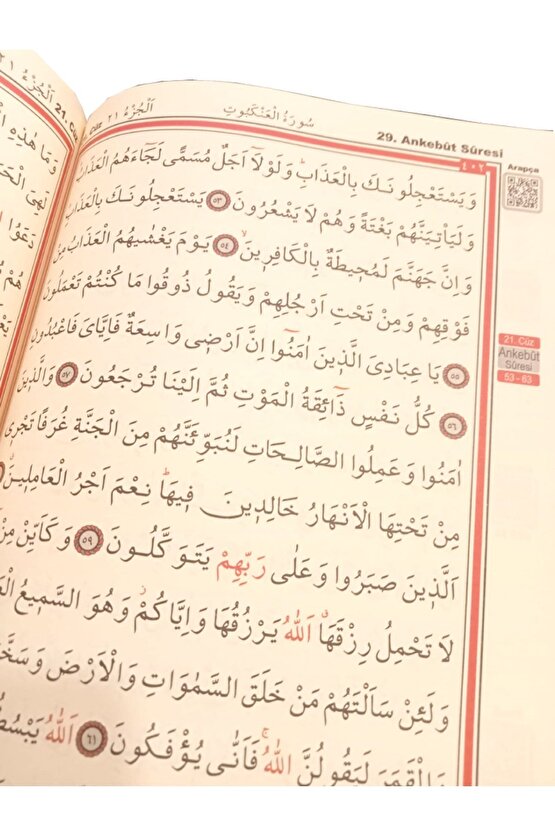 سُورَةُ الْعَنْكَبُوتِ
اَلْجُزْءُ ٢١
29. Ankebût Sûresi
٤٠٢
Arapça
وَيَسْتَعْجِلُونَكَ بِالْعَذَابِ وَلَوْلَآ اَجَلٌ مُسَمًّى لَجَآءَهُمُ الْعَذَابُ
وَلَيَأْتِيَنَّهُمْ بَغْتَةً وَهُمْ لَا يَشْعُرُونَ ٥٣ يَسْتَعْجِلُونَكَ بِالْعَذَابِ
وَاِنَّ جَهَنَّمَ لَمُحِيطَةٌ بِالْكَافِرِينَ ٥٤ يَوْمَ يَغْشٰيهُمُ الْعَذَابُ مِنْ
فَوْقِهِمْ وَمِنْ تَحْتِ اَرْجُلِهِمْ وَيَقُولُ ذُوقُوا مَا كُنْتُمْ تَعْمَلُونَ
٥٥ يَا عِبَادِيَ الَّذِينَ اٰمَنُٓوا اِنَّ اَرْضِي وَاسِعَةٌ فَاِيَّايَ فَاعْبُدُونِ
٥٦ كُلُّ نَفْسٍ ذَآئِقَةُ الْمَوْتِ ثُمَّ اِلَيْنَا تُرْجَعُونَ ٥٧ وَالَّذِينَ
اٰمَنُوا وَعَمِلُوا الصَّالِحَاتِ لَنُبَوِّئَنَّهُمْ مِنَ الْجَنَّةِ غُرَفًا تَجْرِي
مِنْ تَحْتِهَا الْاَنْهَارُ خَالِدِينَ فِيهَا نِعْمَ اَجْرُ الْعَامِلِينَ
اَلَّذِينَ صَبَرُوا وَعَلٰى رَبِّهِمْ يَتَوَكَّلُونَ ٥٩ وَكَاَيِّنْ مِنْ
لَا تَحْمِلُ رِزْقَهَا اَللّٰهُ يَرْزُقُهَا وَاِيَّاكُمْ وَهُوَ السَّمِيعُ
وَلَئِنْ سَاَلْتَهُمْ مَنْ خَلَقَ السَّمٰوَاتِ وَالْاَرْضَ وَسَخَّرَ
وَالْقَمَرَ لَيَقُولُنَّ اللّٰهُ فَاَنّٰى يُؤْفَكُونَ ٦١ اَللّٰهُ يَبْسُطُ
21. Cüz
Ankebût
Sûresi
53 - 63